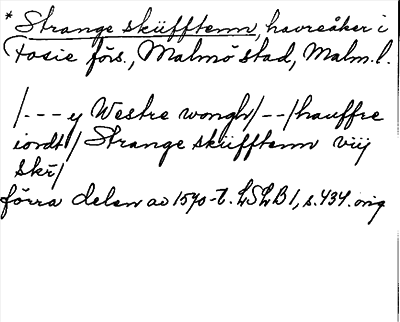 * Strange skiifftenn, havreåker i
Fosie förs., Malmö stad, Malm.l.
/--- y Westre wongh/--/hauffre
iordt/ Strange skiifftenn viij
skr/
förra delen av 1570-t. LSLB 1, s. 434. orig